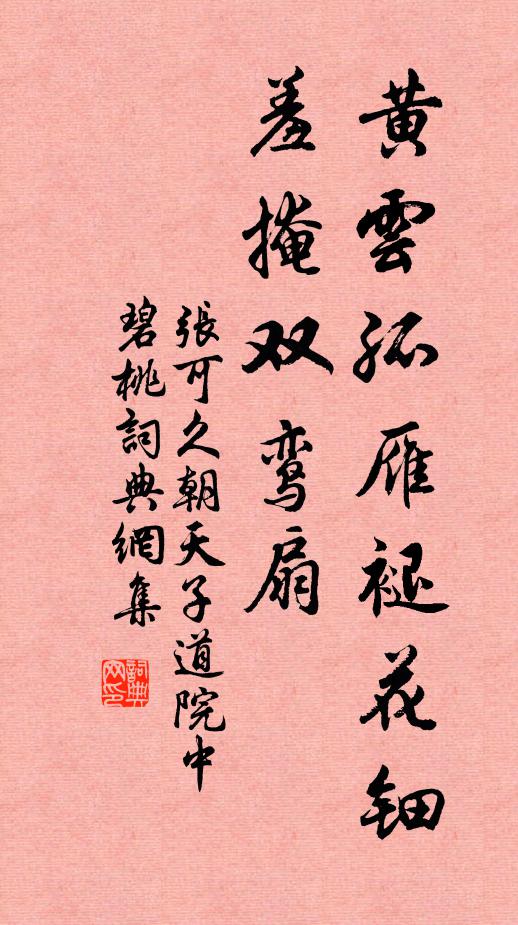 黄雲孤雁褪花钿
羞掩双鸾扇
張可久朝天子道院中
碧桃詞典網集
詞典網印